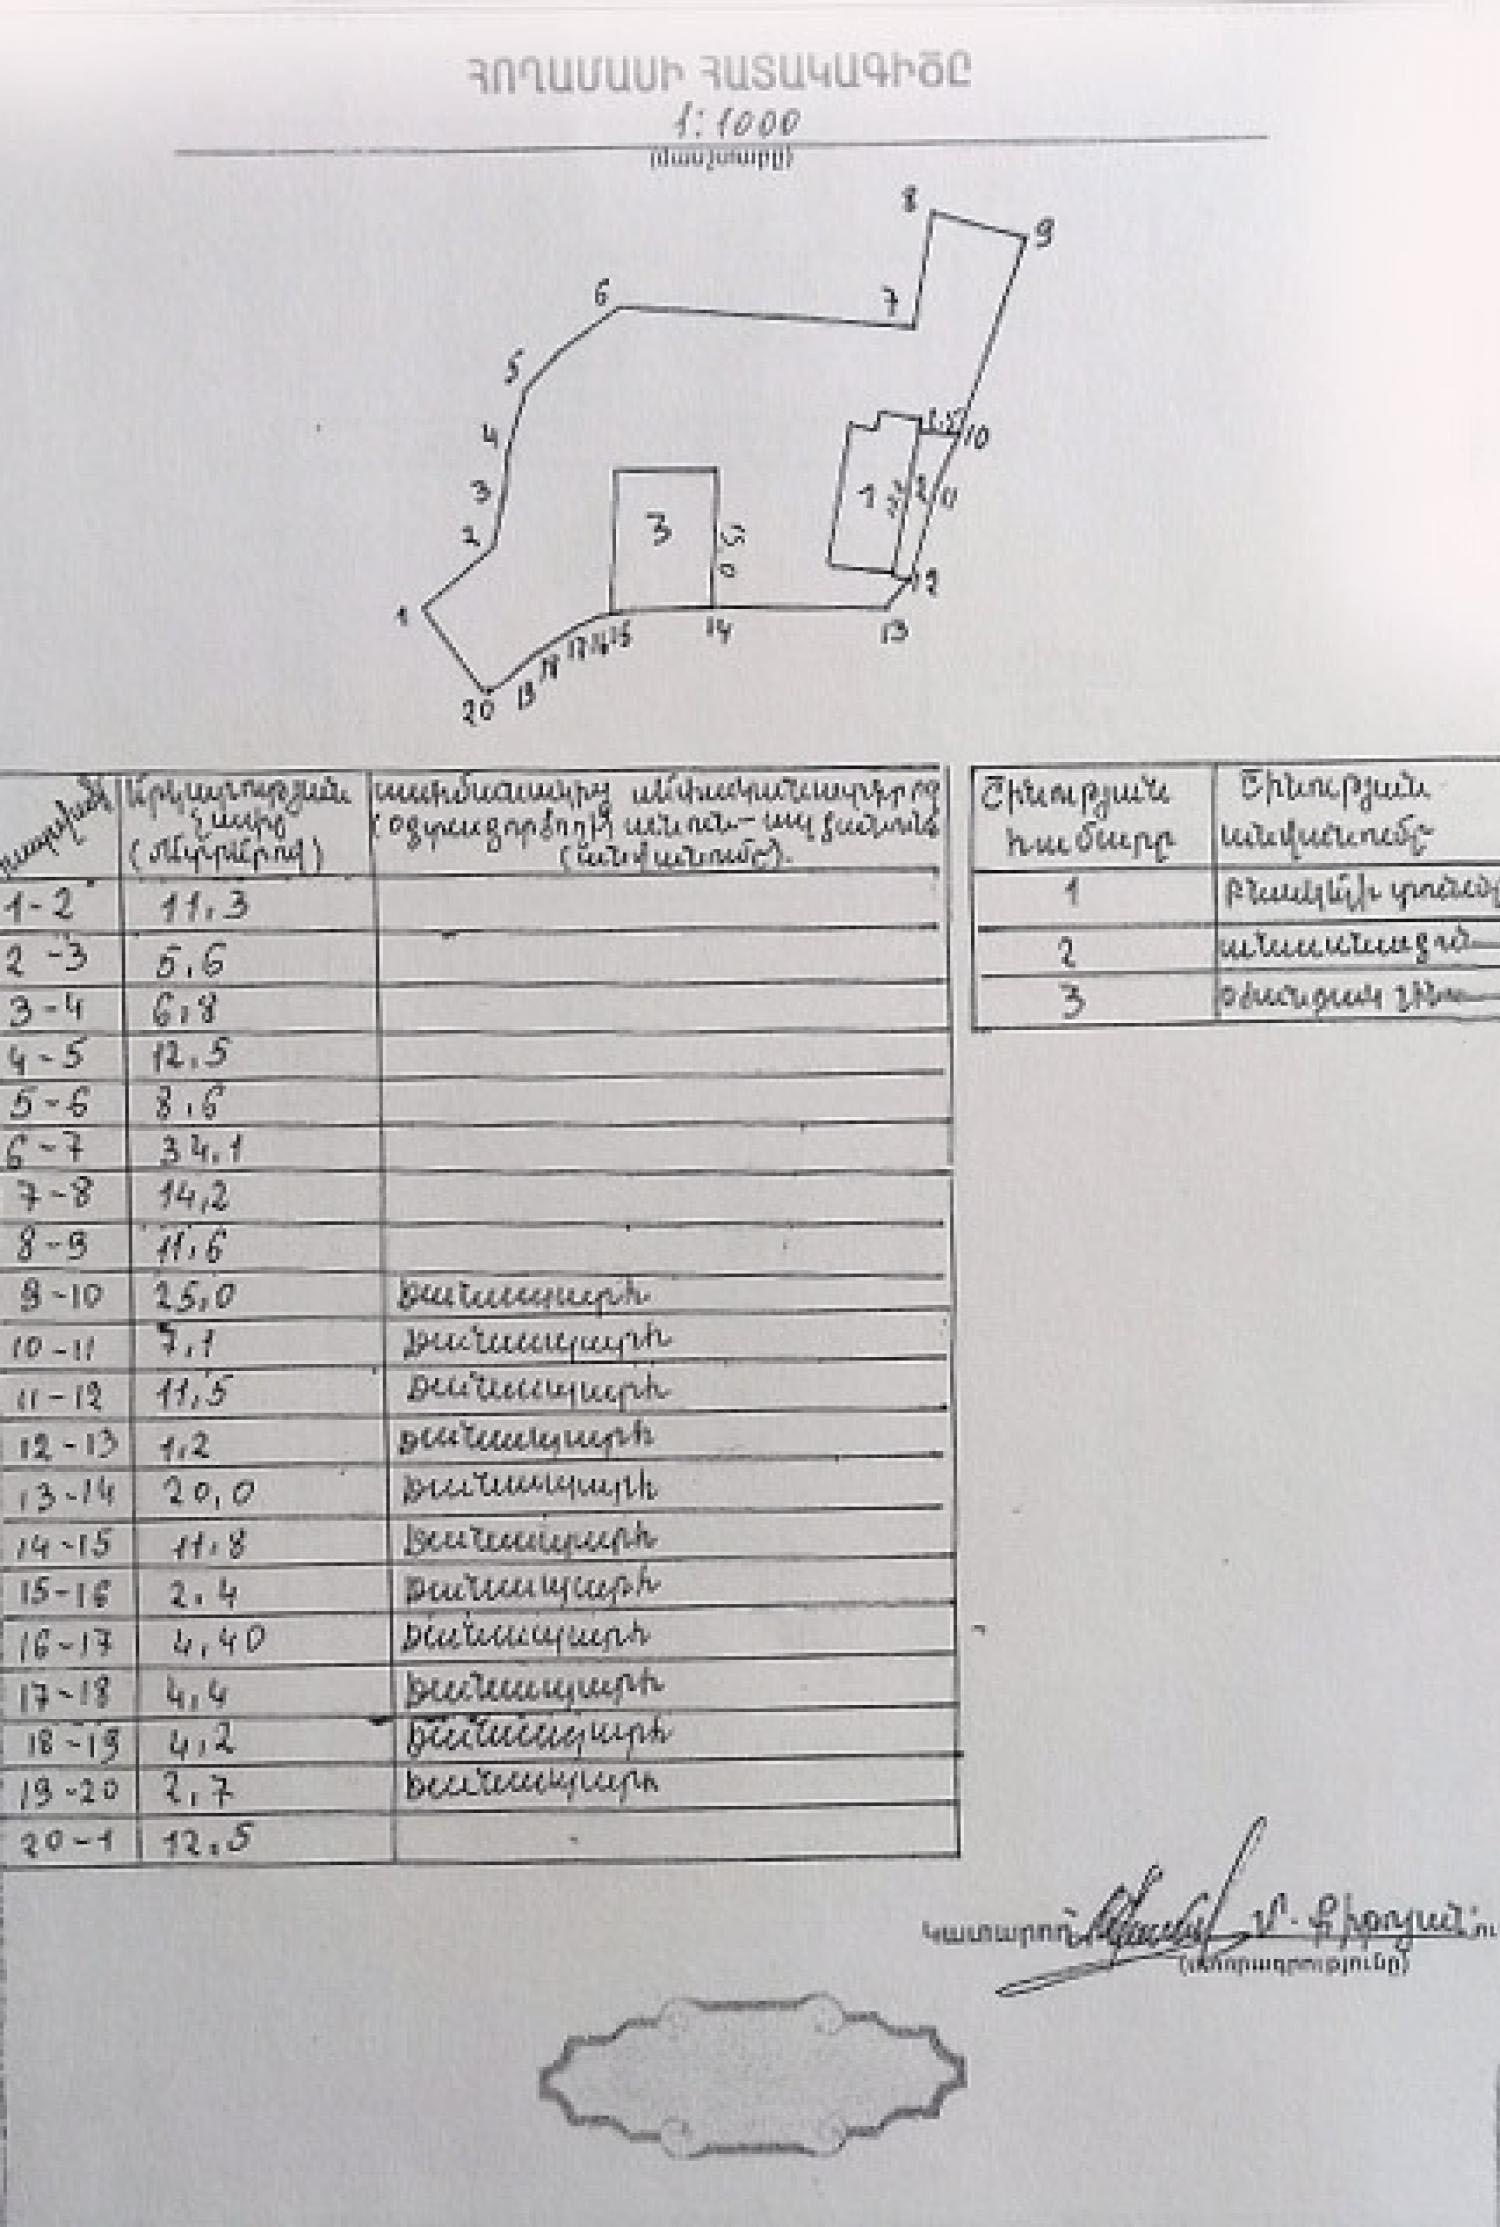 ՀՈՂԱՄԱՍԻ ՀԱՏԱԿԱԳԻԾԸ
1:1000
(մասշտաբը)
8
9
6
7
5
4
10
3
1
2
11
3
2
0,5
12
1
13
14
15
16
17
18
19
20
Երկարության չափը (մետրերով)
սահմանակից սեփականատերերի (օգտագործողի) անուն-ազգանունը (անվանումը).
1-2 11,3
2-3 5,6
3-4 6,8
4-5 12,5
5-6 8,6
6-7 34,1
7-8 14,2
8-9 11,6
9-10 25,0 Ճանապարհ
10-11 7,1 Ճանապարհ
11-12 11,5 Ճանապարհ
12-13 1,2 Ճանապարհ
13-14 20,0 Ճանապարհ
14-15 11,8 Ճանապարհ
15-16 2,4 Ճանապարհ
16-17 4,40 Ճանապարհ
17-18 4,4 Ճանապարհ
18-19 4,2 Ճանապարհ
19-20 2,7 Ճանապարհ
20-1 12,5
Շինության համարը
Շինության անվանումը
1 Բնակելի տուն
2 անասնագոմ
3 օժանդակ շին
Կատարող՝ Մ. Քիթոյան
(ստորագրությունը)